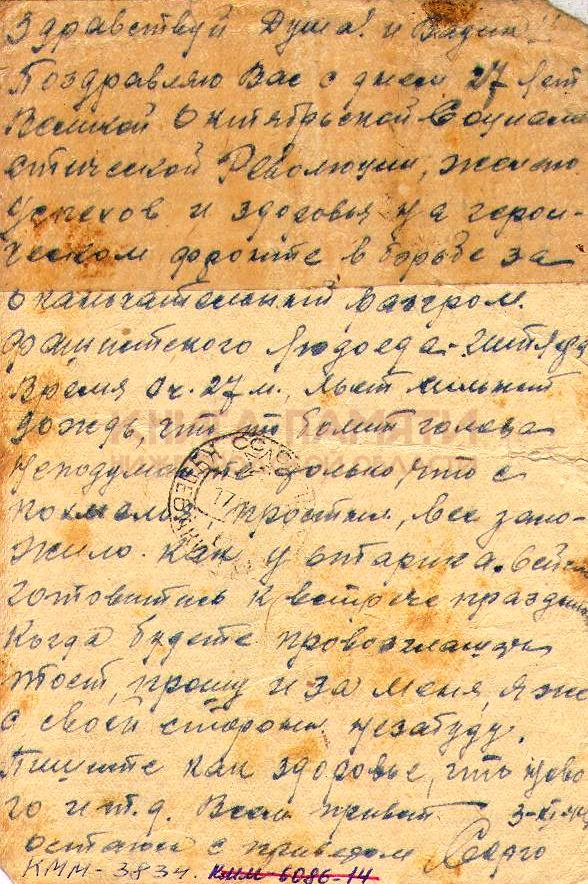 Здравствуй Душа! и Вадим!!
Поздравляю Вас с днем 27 лет
Великой Октябрьской Социали
стической Революции, желаю
успехов и здоровья на герои-
ческом фронте в борьбе за
разгром
фашистского людоеда - Гитлера
Время 0 ч. 27 м., льет сильный
дождь, что то болит голова
не подумайте только, что с
похмелья простыл, все зало-
жило как у старика.
готовитесь к встрече праздни
Когда будете провозглашать
тост, прошу и за меня, я же
с своей стороны незабуду.
Пишите как здоровье, что ново
го и т.д. Всем привет 3-XI-44
остаюсь с приветом
КММ-3834. КММ 6086-14
КНИГА ПАМЯТИ